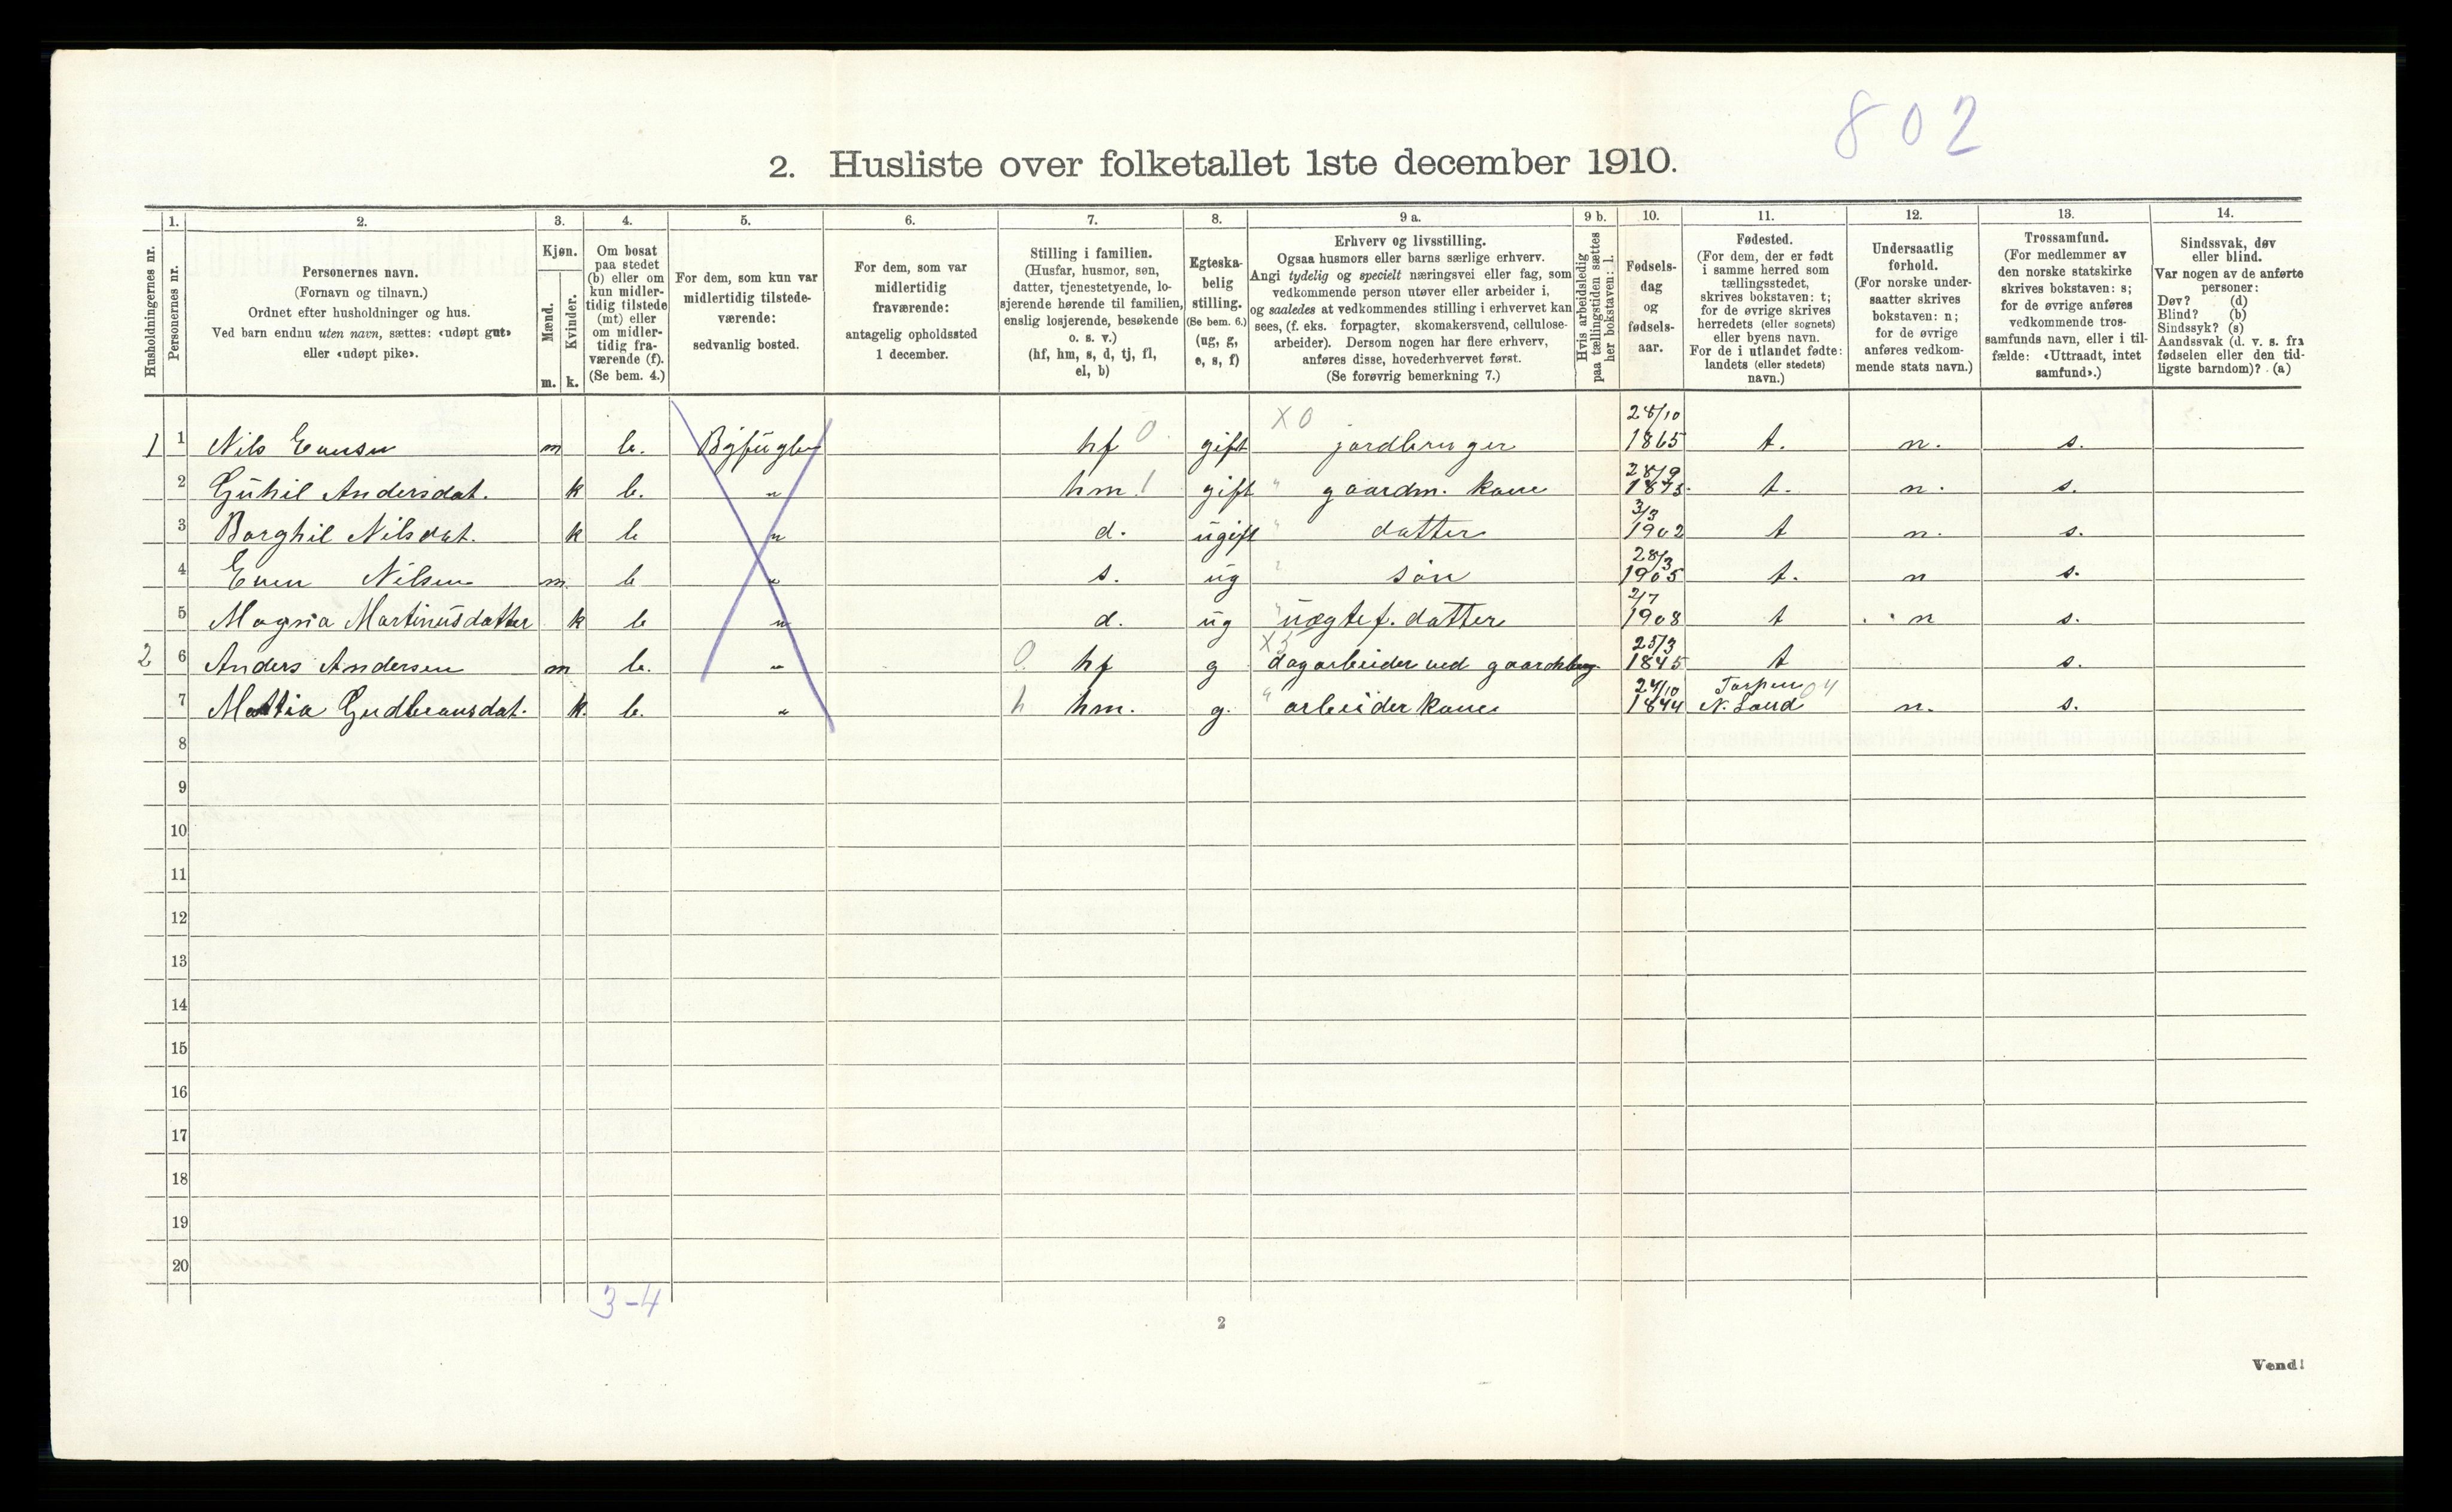 802
2. Husliste over folketallet 1ste december 1910.
1. 2. 3. 4. 5. 6. 7. 8. 9 a. 9 b. 10. 11. 12. 13. 14.
Husholdningernes nr.
Personernes nr.
Personernes navn.
(Fornavn og tilnavn.)
Ordnet efter husholdninger og hus.
Ved barn endnu uten navn, sættes: «udøpt gut»
eller «udøpt pike».
Kjøn.
Mænd.
Kvinder.
m. k.
Om bosat
paa stedet
(b) eller om
kun midler-
tidig tilstede
(mt) eller
om midler-
tidig fra-
værende (f).
(Se bem. 4.)
For dem, som kun var
midlertidig tilstede-
værende:
sedvanlig bosted.
For dem, som var
midlertidig
fraværende:
antagelig opholdssted
1 december.
Stilling i familien.
(Husfar, husmor, søn,
datter, tjenestetyende, lo-
sjerende hørende til familien,
enslig losjerende, besøkende
o. s. v.)
(hf, hm, s, d, tj, fl,
el, b)
Egteska-
belig
stilling.
(Se bem. 6.)
(ug, g,
e, s, f)
Erhverv og livsstilling.
Ogsaa husmors eller barns særlige erhverv.
Angi tydelig og specielt næringsvei eller fag, som
vedkommende person utøver eller arbeider i,
og saaledes at vedkommendes stilling i erhvervet kan
sees, (f. eks. forpagter, skomakersvend, cellulose-
arbeider). Dersom nogen har flere erhverv,
anføres disse, hovederhvervet først.
(Se forøvrig bemerkning 7.)
Hvis arbeidsledig
paa tællingstiden sættes
her bokstaven: l.
Fødsels-
dag
og
fødsels-
aar.
Fødested.
(For dem, der er født
i samme herred som
tællingsstedet,
skrives bokstaven: t;
for de øvrige skrives
herredets (eller sognets)
eller byens navn.
For de i utlandet fødte:
landets (eller stedets)
navn.)
Undersaatlig
forhold.
(For norske under-
saatter skrives
bokstaven: n;
for de øvrige
anføres vedkom-
mende stats navn.)
Trossamfund.
(For medlemmer av
den norske statskirke
skrives bokstaven: s;
for de øvrige anføres
vedkommende tros-
samfunds navn, eller i til-
fælde: «Uttraadt, intet
samfund».)
Sindssvak, døv
eller blind.
Var nogen av de anførte
personer:
Døv? (d)
Blind? (b)
Sindssyk? (s)
Aandssvak (d. v. s. fra
fødselen eller den tid-
ligste barndom)? (a)
1 1 Nils Evensen m b. Bÿfugle hf 0 gift X 0 jordbruger 28/10 1865 t. n. s.
2 Guhil Andersdat. k b. " hm 1 gift " gaardm. kone 28/9 1873. t. n. s.
3 Borghil Nilsdat. k b " d. ugift " datter 3/3 1902 t n. s.
4 Even Nilsen m b " s. ug " søn 28/3 1905 t. n s.
5 Magna Martinusdatter k b " d. ug " uægtef. datter 2/7 1908 t n s.
2 6 Anders Andersen m b. " 0 hf g X 3 dagarbeider ved gaardsbrug 25/3 1845 t s.
7 Mattia Gudbransdat. k. b. " h hm. g. " arbeider kone 24/10 1844 Torpen 04 N. Land n. s.
8
9
10
11
12
13
14
15
16
17
18
19
20
3-4
2
Vend!